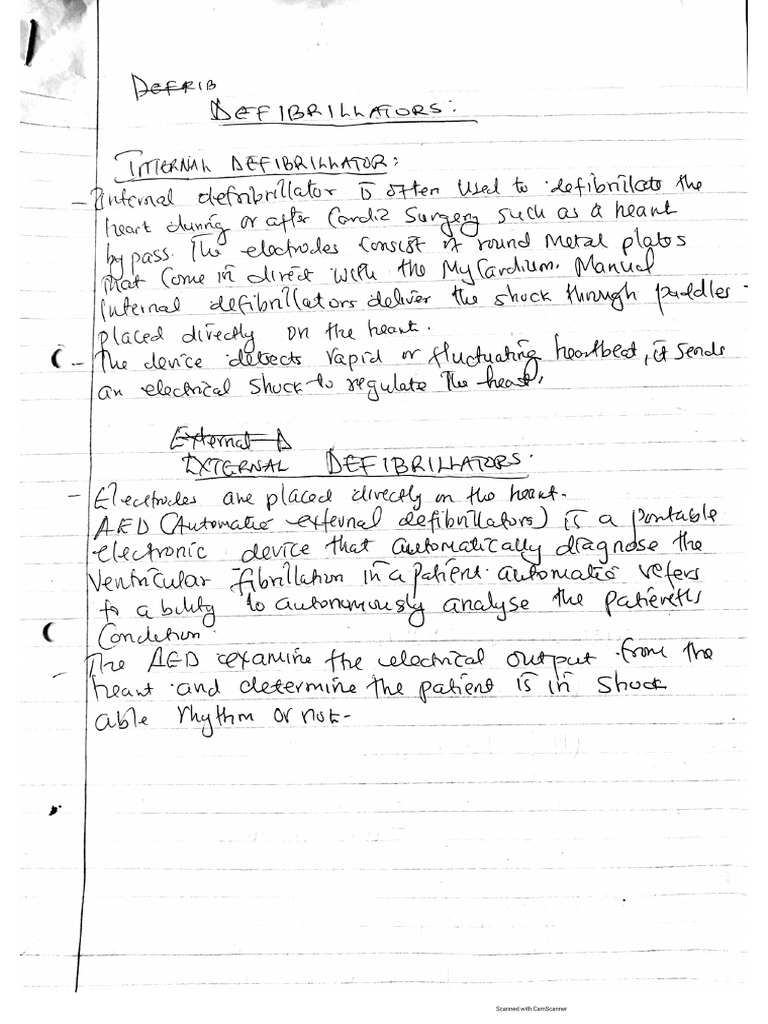 Defrib
DEFIBRILLATORS:
INTERNAL DEFIBRILLATOR:
- Internal defribrillator is often used to defibrillate the
heart during or after Cardiz Surgery such as a heart
by pass. The electrodes consist of round metal plates
that come in direct with the Mycardium. Manual
internal defibrillators deliver the shock through paddles
placed directly on the heart.
- The device detects rapid or fluctuating heartbeat, it sends
an electrical shock to regulate the heart.
External D
EXTERNAL DEFIBRILLATORS.
- Electrodes are placed directly on the heart.
AED (Automatic external defibrillators) is a portable
electronic device that automatically diagnose the
ventricular fibrillation in a patient. automatic refers
to ability to autonomously analyse the patients
Condition.
- The AED examine the electrical output from the
heart and determine the patient is in shock
able rhythm or not-
Scanned with CamScanner